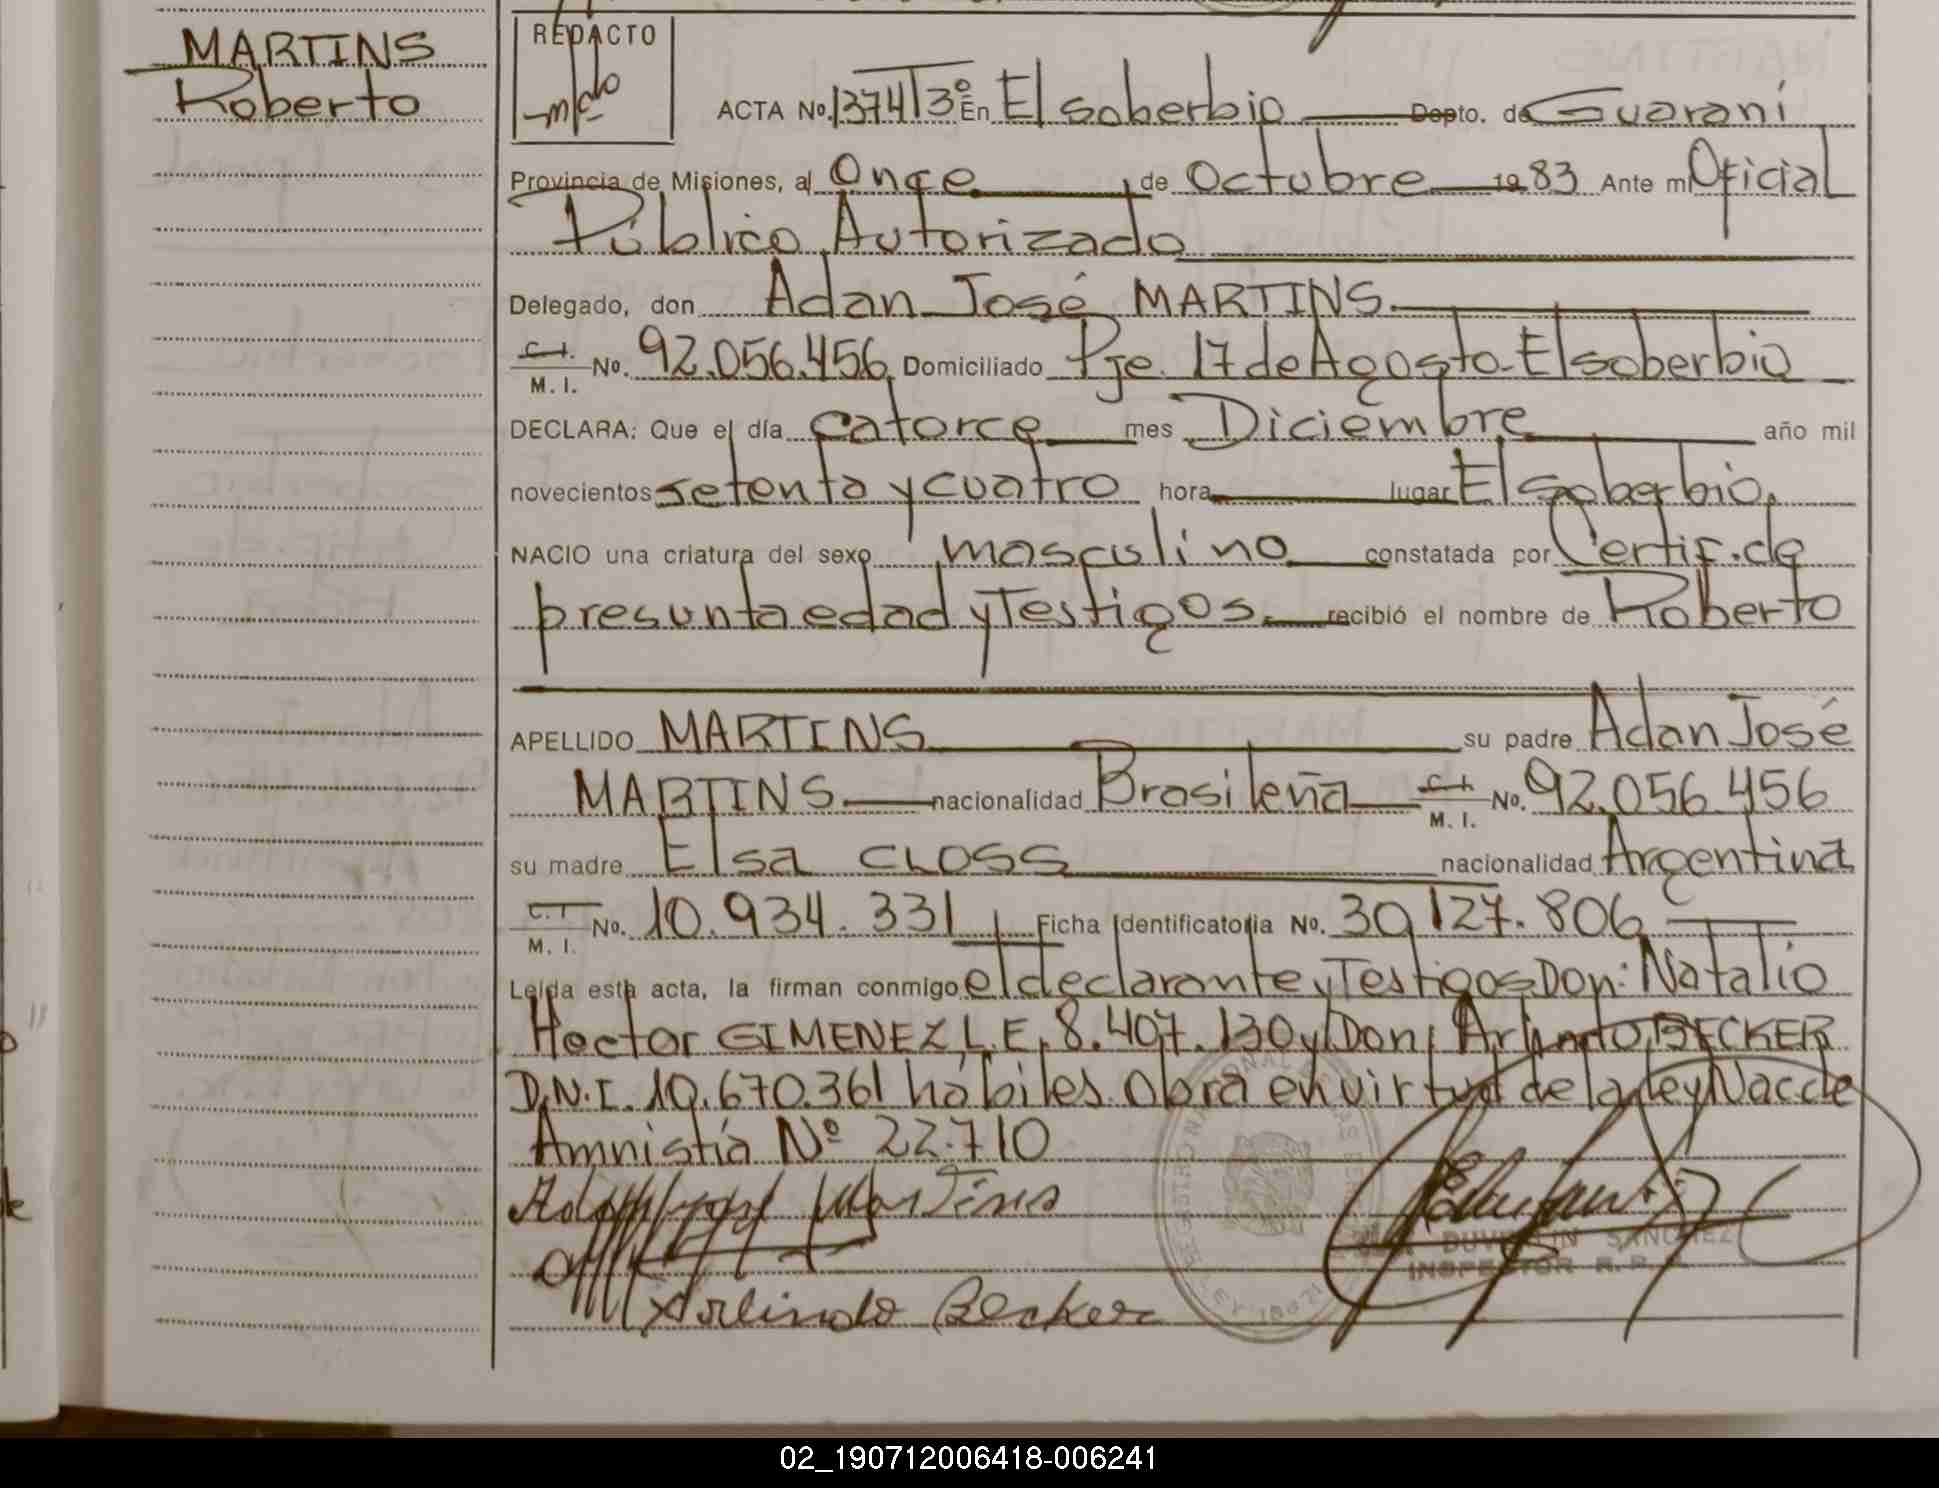 MARTINS
Roberto
REDACTO
ACTA Nº. 1374 T3º En El soberbio Depto. de Guaraní
Provincia de Misiones, al Once de Octubre 1983 Ante mi Oficial
Público Autorizado
Delegado, don Adan José MARTINS
C.I. M. I. Nº. 92.056.456 Domiciliado Pje. 17 de Agosto-El soberbio
DECLARA: Que el día catorce mes Diciembre año mil
novecientos setenta y cuatro hora lugar El soberbio.
NACIO una criatura del sexo masculino constatada por Certif. de
presunta edad y Testigos. recibió el nombre de Roberto
APELLIDO MARTINS su padre Adan José
MARTINS nacionalidad Brasileña C.I. M. I. Nº. 92.056.456
su madre Elsa CLOSS nacionalidad Argentina
C.I. M. I. Nº. 10.934.331 Ficha Identificatoria Nº. 30.127.806
Leída esta acta, la firman conmigo el declarante y Testigos Don: Natalio
Hector GIMENEZ, L.E. 8.407.130 y Don Arlindo BECKER
D.N.I. 10.670.361 hábiles. Obra en virtud de la ley Nac de
Amnistía Nº 22.710
Martins
DUVILLIN SANCHEZ
INSPECTOR R. P.
Arlindo Becker
02_190712006418-006241